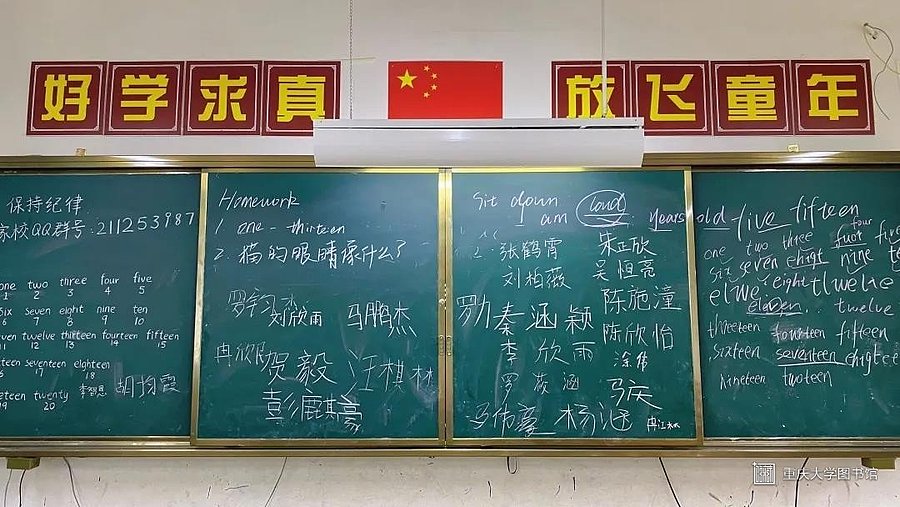 好学求真
放飞童年
保持纪律
家校QQ群号:211253987
one two three four five
1 2 3 4 5
six seven eight nine ten
6 7 8 9 10
even twelve thirteen fourteen fifteen
11 12 13 14 15
teen seventeen eighteen
17 18
eteen twenty
19 20
李智恩
胡均霞
Homework
1. one - thirteen
2. 猫的眼睛像什么了
刘欣雨
马鹏杰
贺毅
汪棋林
彭麒亭
Sit down
am loud years old
张鹤霄
刘柏薇
秦涵颖
李欣雨
罗 涵
马伟豪
杨涵
朱正欣
吴恒亮
陈施潼
陈欣怡
涂伟
马庆
冉江
five fifteen
four
one two three fuot five
six seven eight nine te
elwe eight tlwelve
eleven twelve
threeteen fourteen fifteen
sixteen seventeen eighteen
nineteen twoteen
重庆大学图书馆